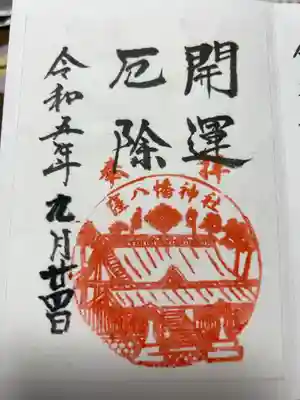 開運
厄除
奉拝
窪八幡神社
令和五年九月廿四日